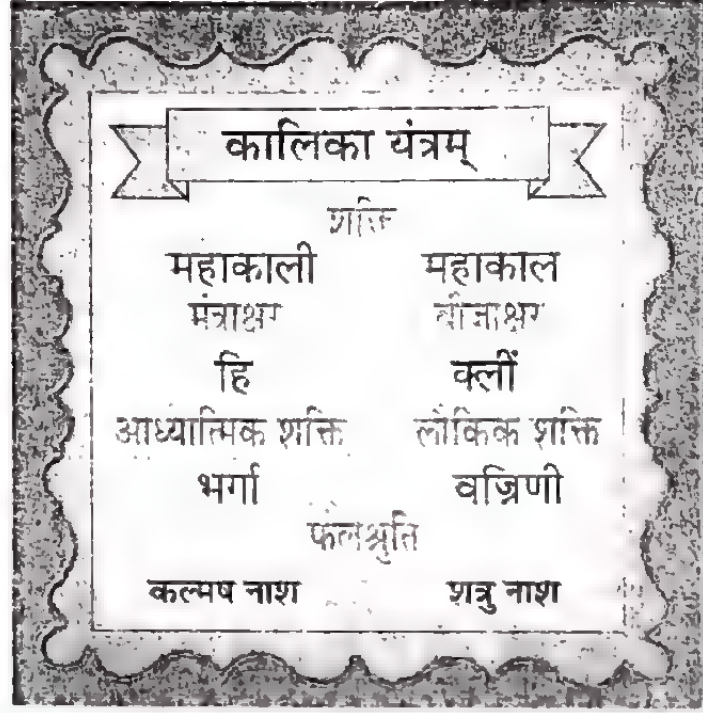 कालिका यंत्रम्
शक्ति
महाकाली महाकाल
मंत्राक्षर बीजाक्षर
हि क्लीं
आध्यात्मिक शक्ति लौकिक शक्ति
भर्गा वज्रिणी
फलश्रुति
कल्मष नाश शत्रु नाश